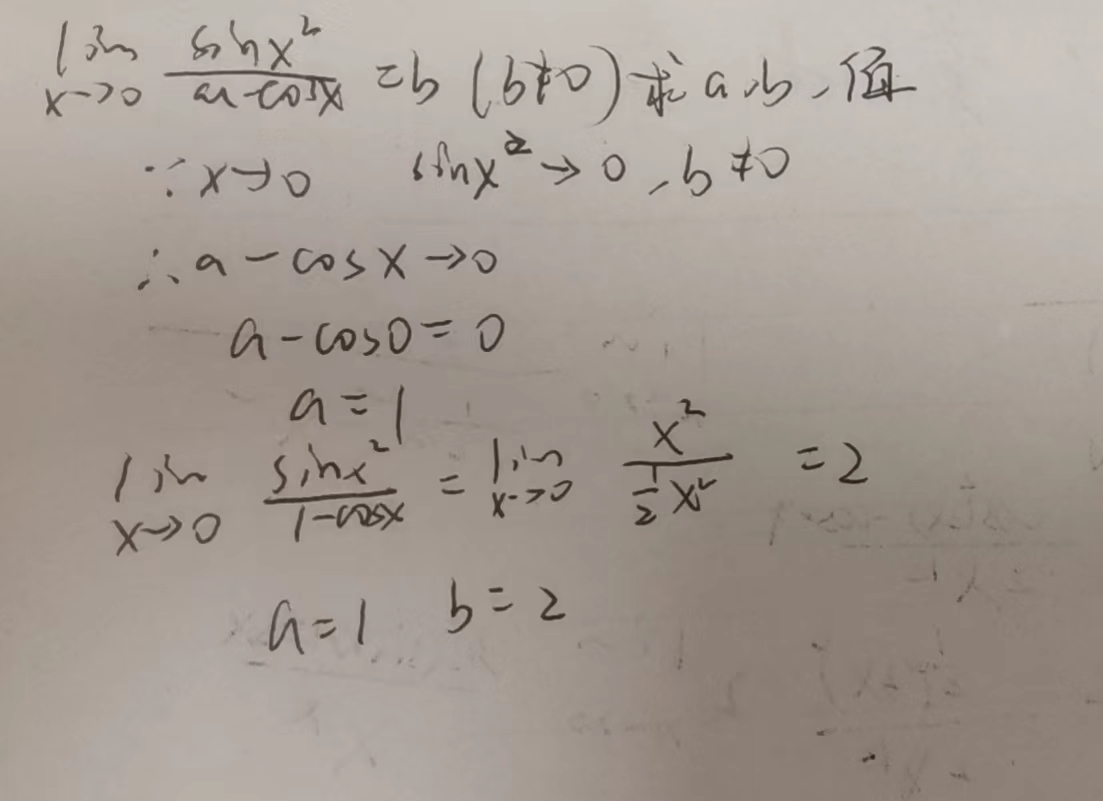 lim x→0 sinx²/(a-cosx) = b (b≠0) 求 a、b、值
∵ x→0 sinx²→0, b≠0
∴ a-cosx→0
a-cos0=0
a=1
lim x→0 sinx²/(1-cosx) = lim x→0 x²/(½x²) = 2
a=1 b=2